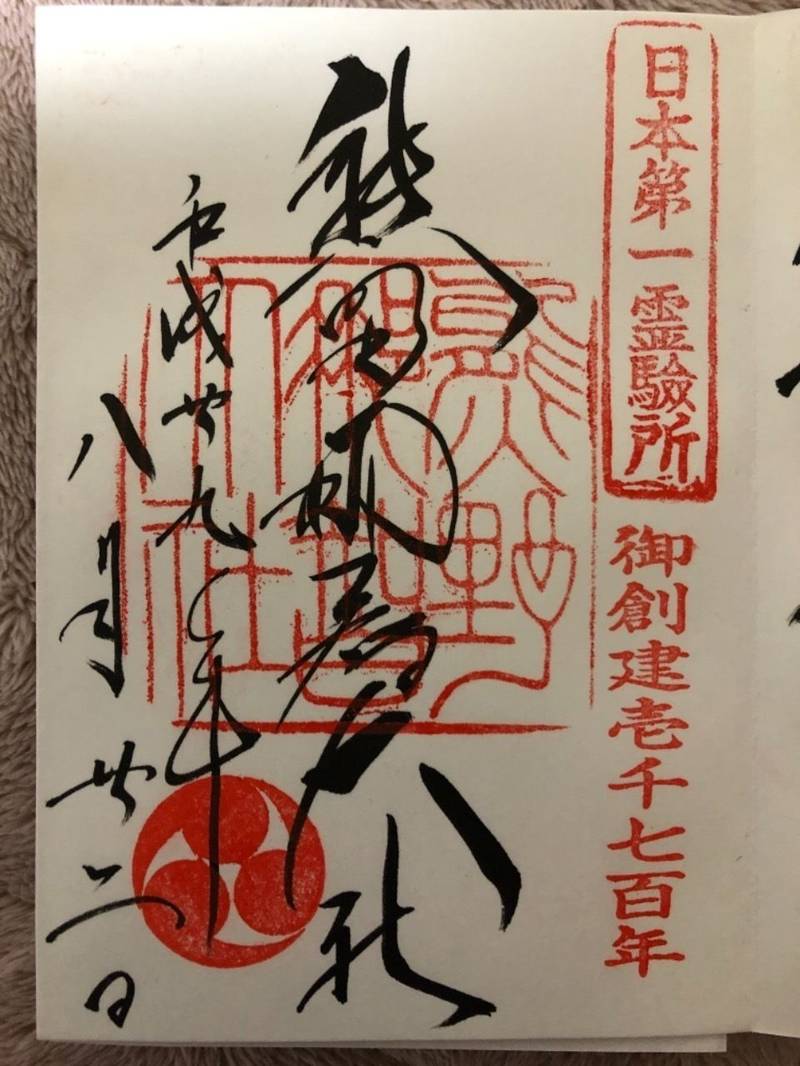 日本第一霊驗所
御創建壱千七百年
熊野那智大社
平成廿九年
八月廿二日